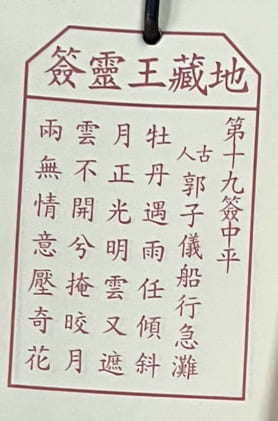 地藏王靈簽
第十九簽中平
古人郭子儀船行急灘
牡丹遇雨任傾斜
月正光明雲又遮
雲不開兮掩皎月
兩無情意壓奇花